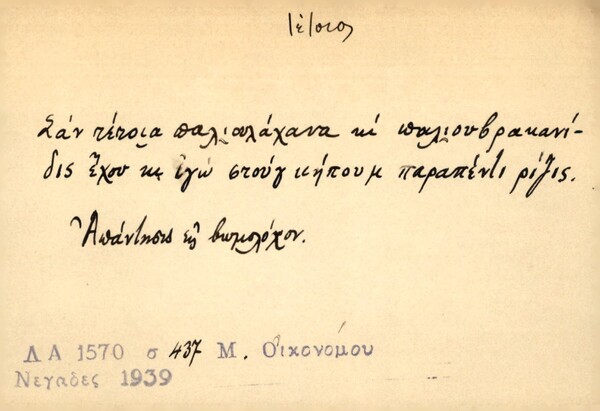 τέτοιος
Σάν τέτοια παλιαλάχανα κί παλιουβρακανί-
δις ἔχου κι ἰγώ στούγ κήπουμ παραπέντι ρίζις.
Ἀπάντησις εἰς βωμολόχον.
Λ Α 1570 σ 437 Μ. Οικονόμου
Νεγαδες 1939